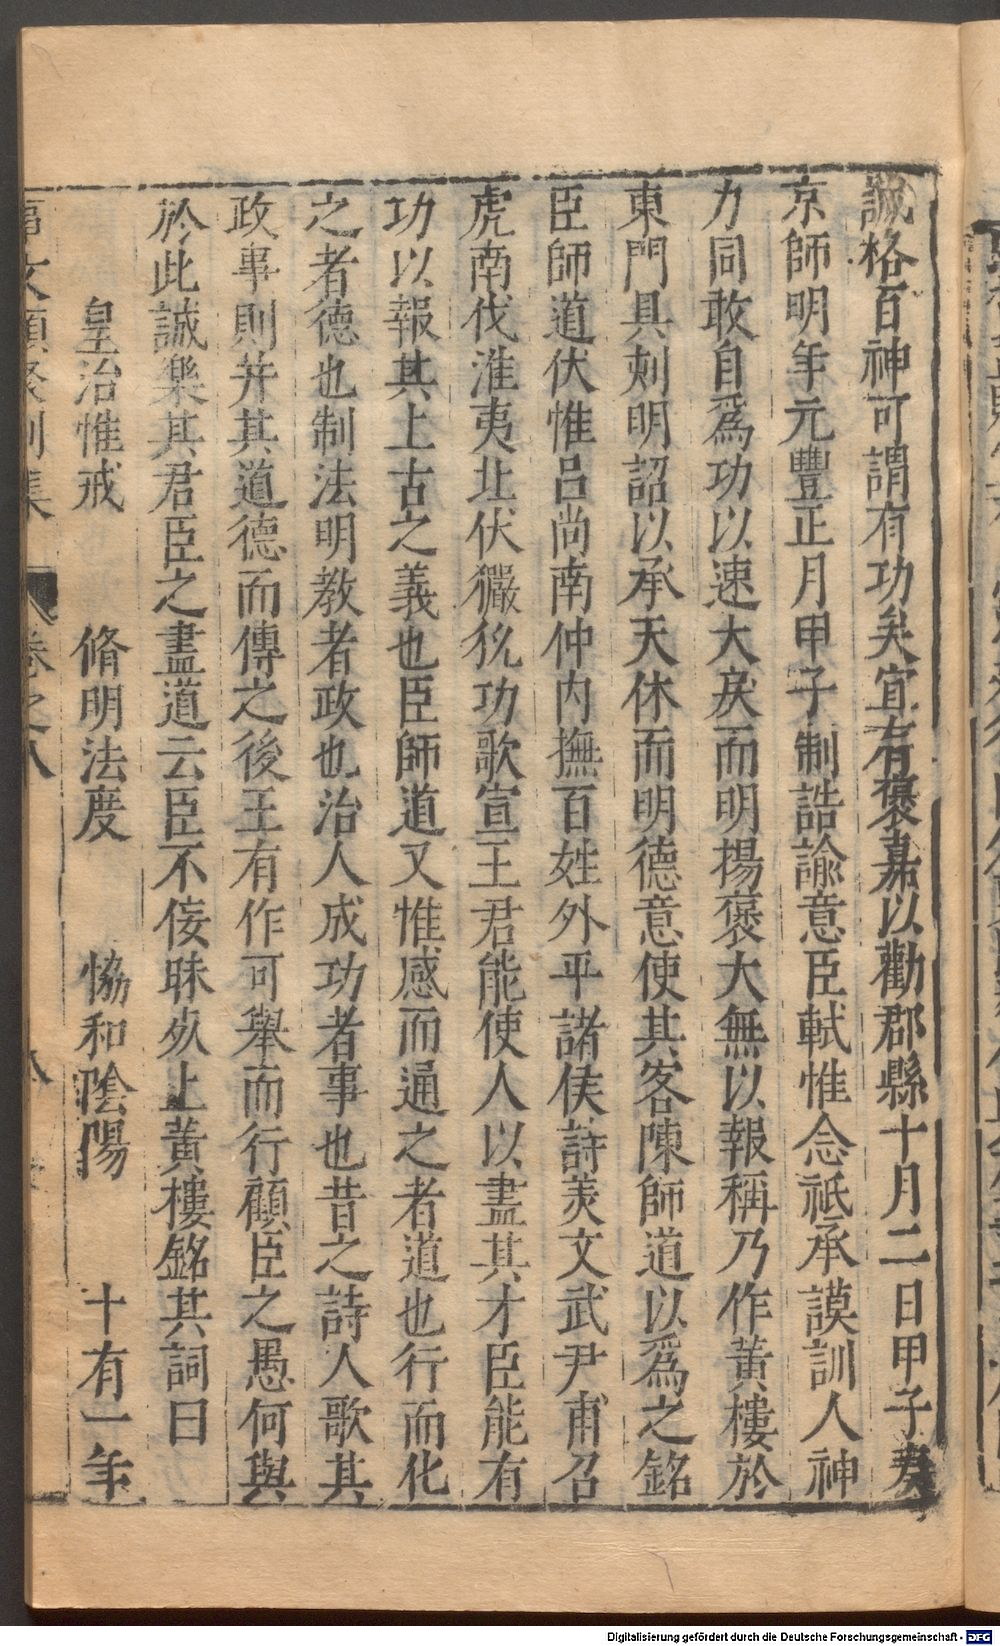 誠格百神可謂有功矣宜有褒嘉以勸郡縣十月二日甲子奏
京師明年元豐正月甲子制誥諭意臣軾惟念祗承謨訓人神
力同敢自爲功以速大戾而明揚褒大無以報稱乃作黃樓於
東門具刺明詔以承天休而明德意使其客陳師道以爲之銘
臣師道伏惟呂尚南仲內撫百姓外平諸侯詩美文武尹甫召
虎南伐淮夷北伏玁狁功歌宣王君能使人以盡其才臣能有
功以報其上古之義也臣師道又惟感而通之者道也行而化
之者德也制法明教者政也治人成功者事也昔之詩人歌其
政事則并其道德而傳之後王有作可舉而行顧臣之愚何與
於此誠樂其君臣之盡道云臣不佞昧死上黃樓銘其詞曰
皇治惟戒　脩明法度　恊和陰陽　十有一年
事文類聚別集　卷之八
Digitalisierung gefördert durch die Deutsche Forschungsgemeinschaft - DFG